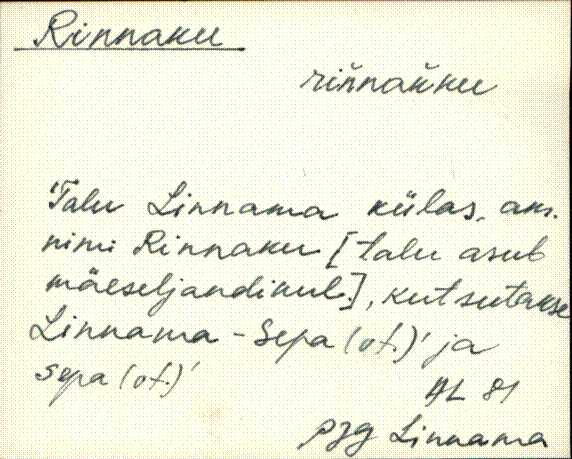 Rinnaku
rin̆nak̆ku
'Talu Linnama külas, am.
nimi Rinnaku [talu asub
mäeseljandikul.], kutsutakse
Linnama-Sepa (ot.)' ja
Sepa (ot.)'
AL 81
Pzg Linnama